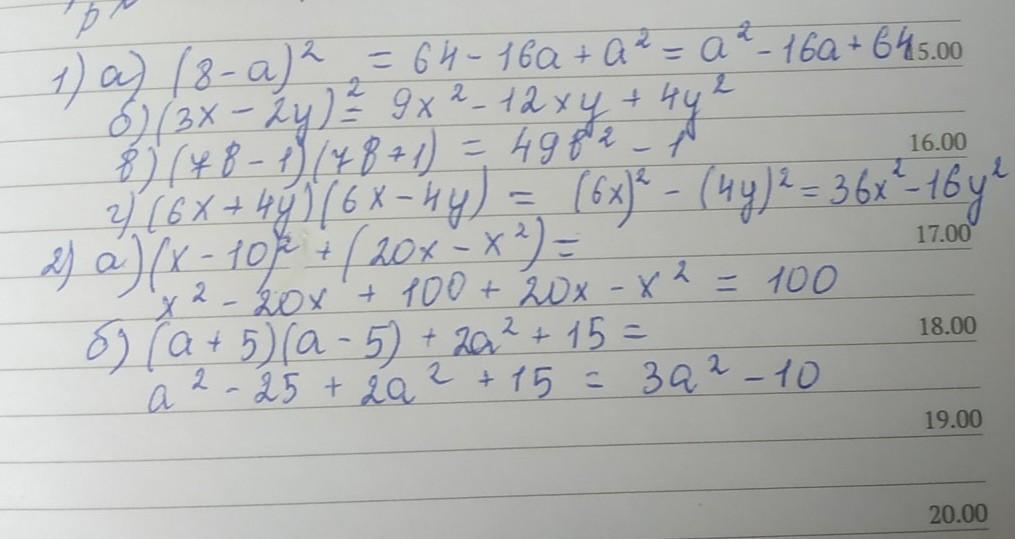 1) а) (8 - a)² = 64 - 16a + a² = a² - 16a + 64
15.00
б) (3x - 2y)² = 9x² - 12xy + 4y²
в) (7в - 1)(7в + 1) = 49в² - 1
16.00
г) (6x + 4y)(6x - 4y) = (6x)² - (4y)² = 36x² - 16y²
17.00
2) а) (x - 10)² + (20x - x²) =
x² - 20x + 100 + 20x - x² = 100
18.00
б) (a + 5)(a - 5) + 2a² + 15 =
a² - 25 + 2a² + 15 = 3a² - 10
19.00
20.00